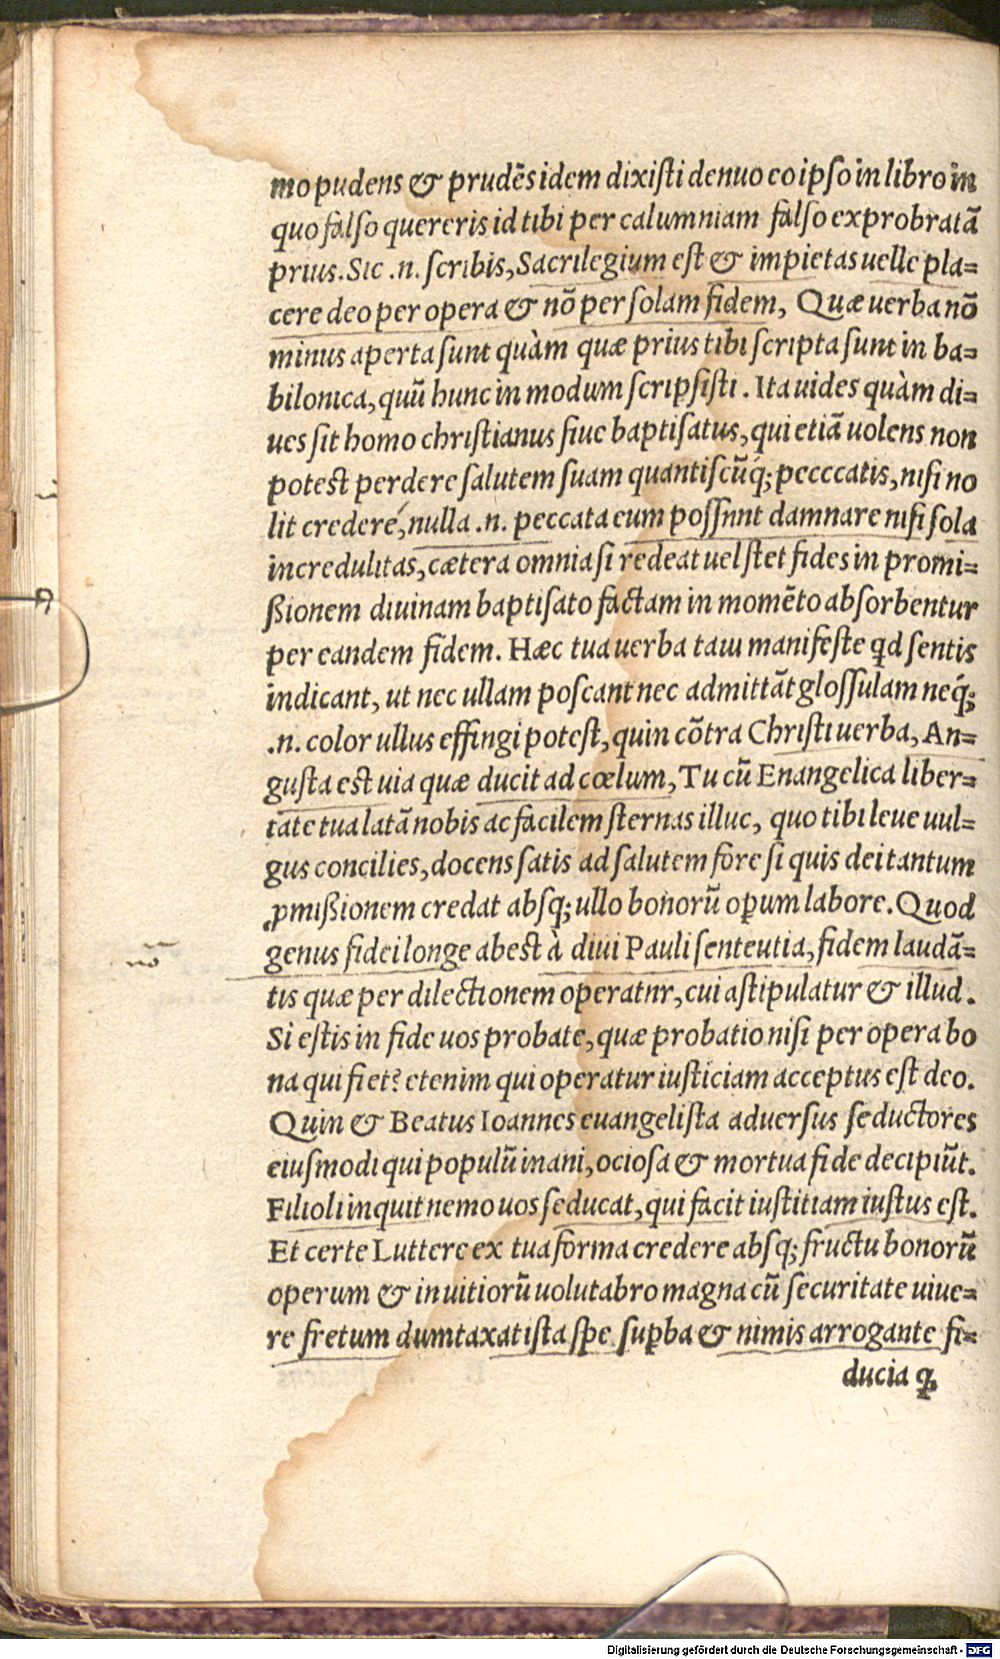 mo pudens & prudẽs idem dixisti denuo eo ipso in libro in
quo falso quereris id tibi per calumniam falso exprobratã
prius. Sic .n. scribis, Sacrilegium est & impietas uelle pla=
cere deo per opera & nõ per solam fidem, Quæ uerba nõ
minus aperta sunt quàm quæ prius tibi scripta sunt in ba=
bilonica, quũ hunc in modum scripsisti. Ita uides quàm di=
ues sit homo christianus siue baptisatus, qui etiã uolens non
potest perdere salutem suam quantiscũq́; pecccatis, nisi no
lit credere, nulla .n. peccata eum possnnt damnare nisi sola
incredulitas, cætera omnia si redeat uel stet fides in promi=
ßionem diuinam baptisato factam in momẽto absorbentur
per eandem fidem. Hæc tua uerba tam manifeste qd sentis
indicant, ut nec ullam poscant nec admittãt glossulam neq́;
.n. color ullus effingi potest, quin cõtra Christi uerba, An=
gusta est uia quæ ducit ad cœlum, Tu cũ Enangelica liber=
tate tua latã nobis ac facilem sternas illuc, quo tibi leue uul=
gus concilies, docens satis ad salutem fore si quis dei tantum
ꝓmißionem credat absq; ullo bonorũ oꝑum labore. Quod
genus fidei longe abest à diui Pauli senteutia, fidem laudã=
tis quæ per dilectionem operatnr, cui astipulatur & illud.
Si estis in fide uos probate, quæ probatio nisi per opera bo
na qui fiet? etenim qui operatur iusticiam acceptus est deo.
Quin & Beatus Ioannes euangelista aduersus seductores
eiusmodi qui populũ inani, ociosa & mortua fide decipiũt.
Filioli inquit nemo uos seducat, qui facit iustitiam iustus est.
Et certe Luttere ex tua forma credere absq; fructu bonorũ
operum & in uitiorũ uolutabro magna cũ securitate uiue=
re fretum dumtaxat ista spe suꝑba & nimis arrogante fi=
ducia ꝗ
Digitalisierung gefördert durch die Deutsche Forschungsgemeinschaft - DFG